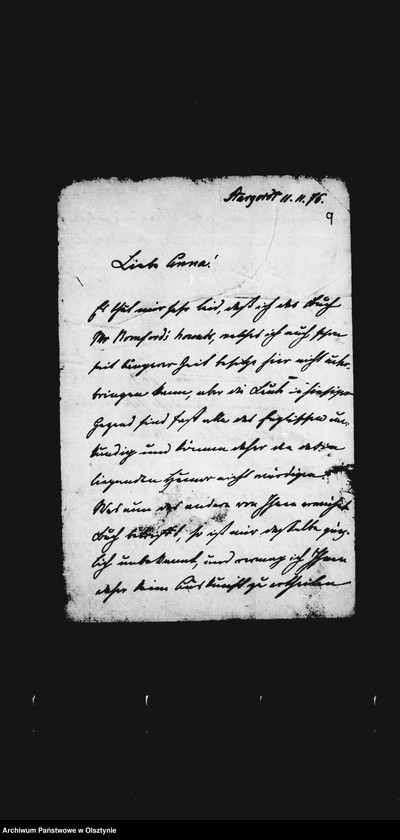 Stargordt 11.11.76.
9
Liebe Anna!
Es thut mir sehr leid, daß ich das Buch
Mr Romfords hounds, welches ich auch schon
seit längerer Zeit besitze hier nicht unter-
bringen kann, aber die Leute in hiesiger
Gegend sind fast alle des Englischen un-
kundig und können daher den darin
liegenden Humor nicht würdigen
Was nun das andere von Ihnen
Buch betrifft, so ist mir dasselbe gänz-
lich unbekannt, und vermag ich Ihnen
daher keine Auskunft zu ertheilen
Archiwum Państwowe w Olsztynie